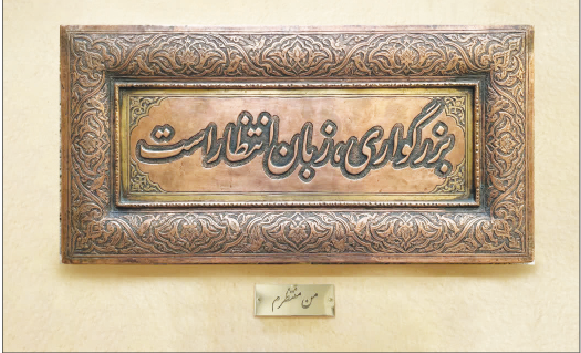 بزرگواری، زبان انتظار است
من منتظرم